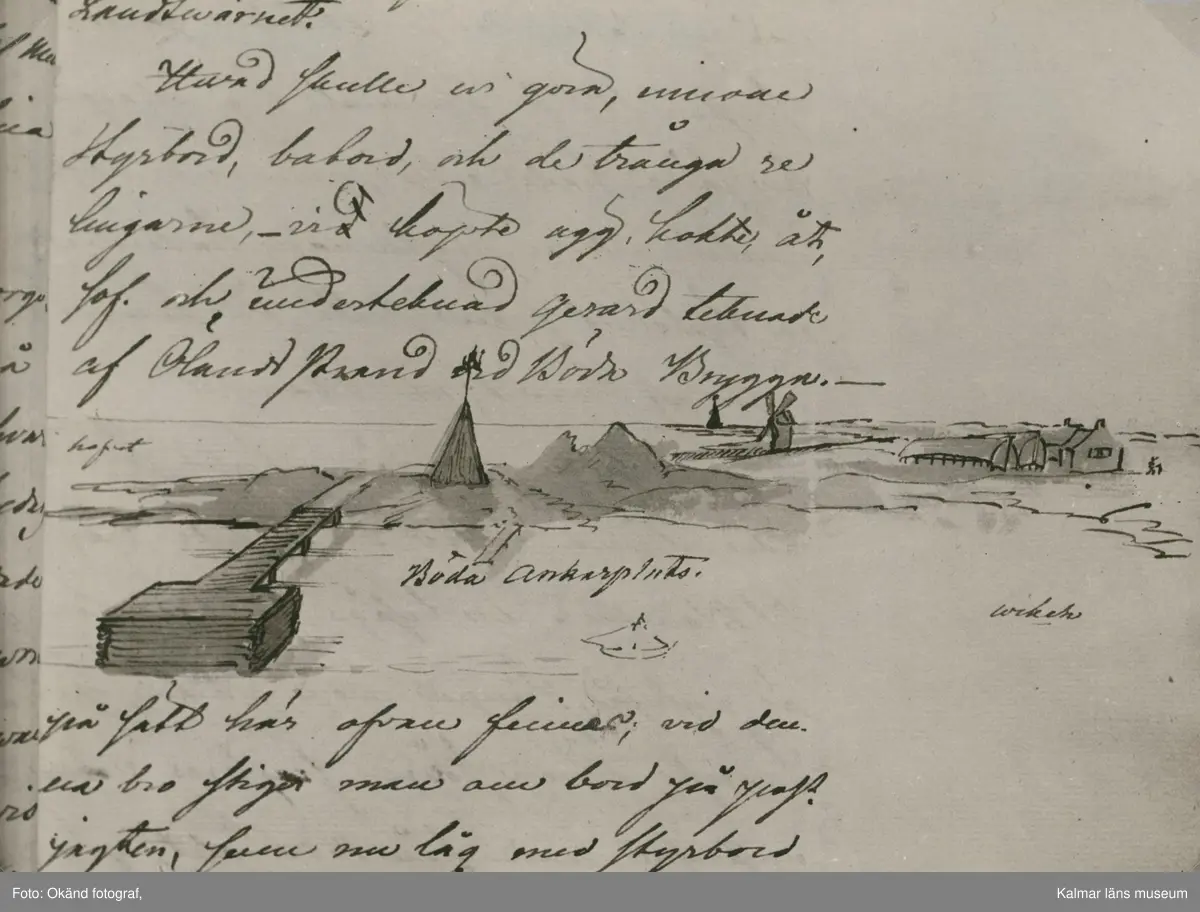 Landtwärnet.
Hvad skulle vi göra, innom
Styrbord, babord, och de trånga re
lingarne, – vid köpte ägg, kokte, åt,
sof. och undertecknad gerard tecknade
af Ölands strand vid Böda Brygga. —
hafvet
Böda Ankarplats.
wiken
på sätt här ofvan finnes; vid den
na bro stiger man om bord på post
jagten, som nu låg med styrbord
Foto: Okänd fotograf,
Kalmar läns museum